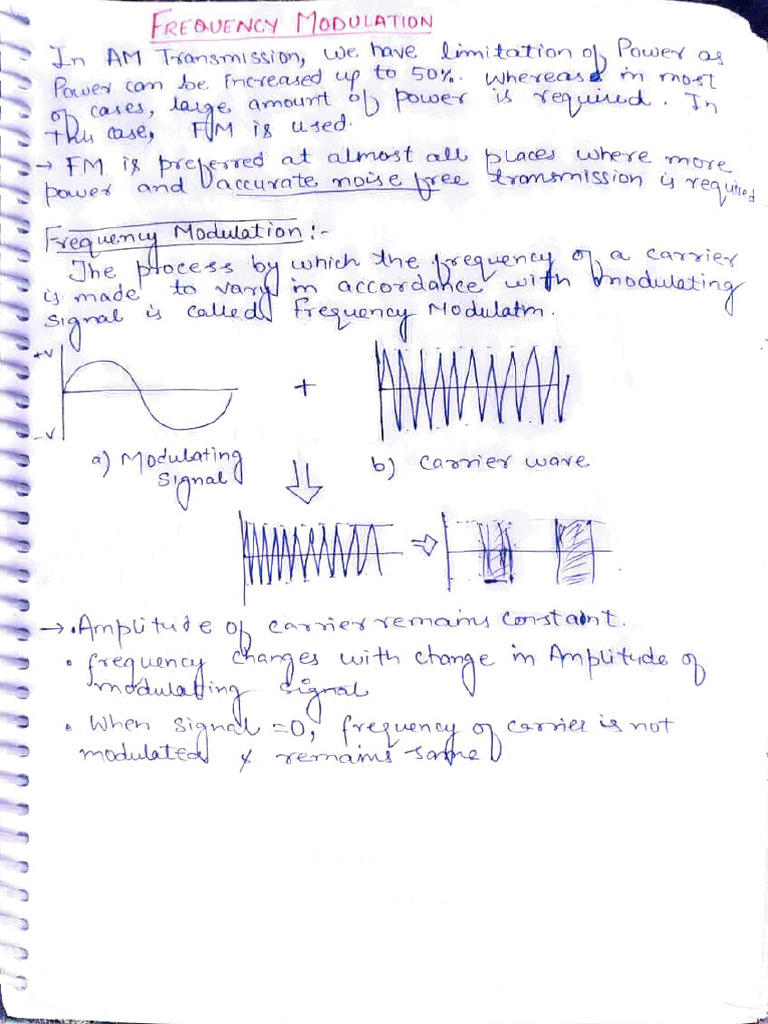 FREQUENCY MODULATION
In AM Transmission, we have limitation of Power as
Power can be increased up to 50%. whereas in most
of cases, large amount of power is required. In
this case, FM is used.
→ FM is preferred at almost all places where more
power and accurate noise free transmission is required
Frequency Modulation:-
The process by which the frequency of a carrier
is made to vary in accordance with modulating
signal is called Frequency Modulatn.
+V
+
-V
a) Modulating
Signal
b) Carrier wave
⇓
⇒
→ • Amplitude of carrier remains constant.
• frequency changes with change in Amplitude of
modulating signal
• When signal = 0, frequency of carrier is not
modulated & remains same